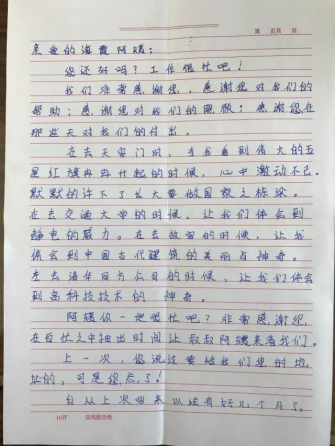 第 页共 页
亲爱的海霞阿姨：
您还好吗？工作很忙吧！
我们非常感谢您，感谢您对我们的
帮助；感谢您对我们的照顾；感谢您在
那些天对我们的付出。
在去天安门时，当我看到伟大的五
星红旗冉冉升起的时候，心中激动不己。
默默的许下了长大要做国家之栋梁。
在去交通大学的时候，让我们体会到
静电的威力。在去故宫的时候，让我
体会到中国古代建筑的美丽与神奇。
在去清华同方公司的时候，让我们体会
到高科技技术的 神奇。
阿姨你一定很忙吧？非常感谢您，
在百忙之中抽出时间让叔叔阿姨来看我们。
上一次，您说过要给我们您的地
址的，可是您忘了！
自从上次回来以还有好几个月了，
16开